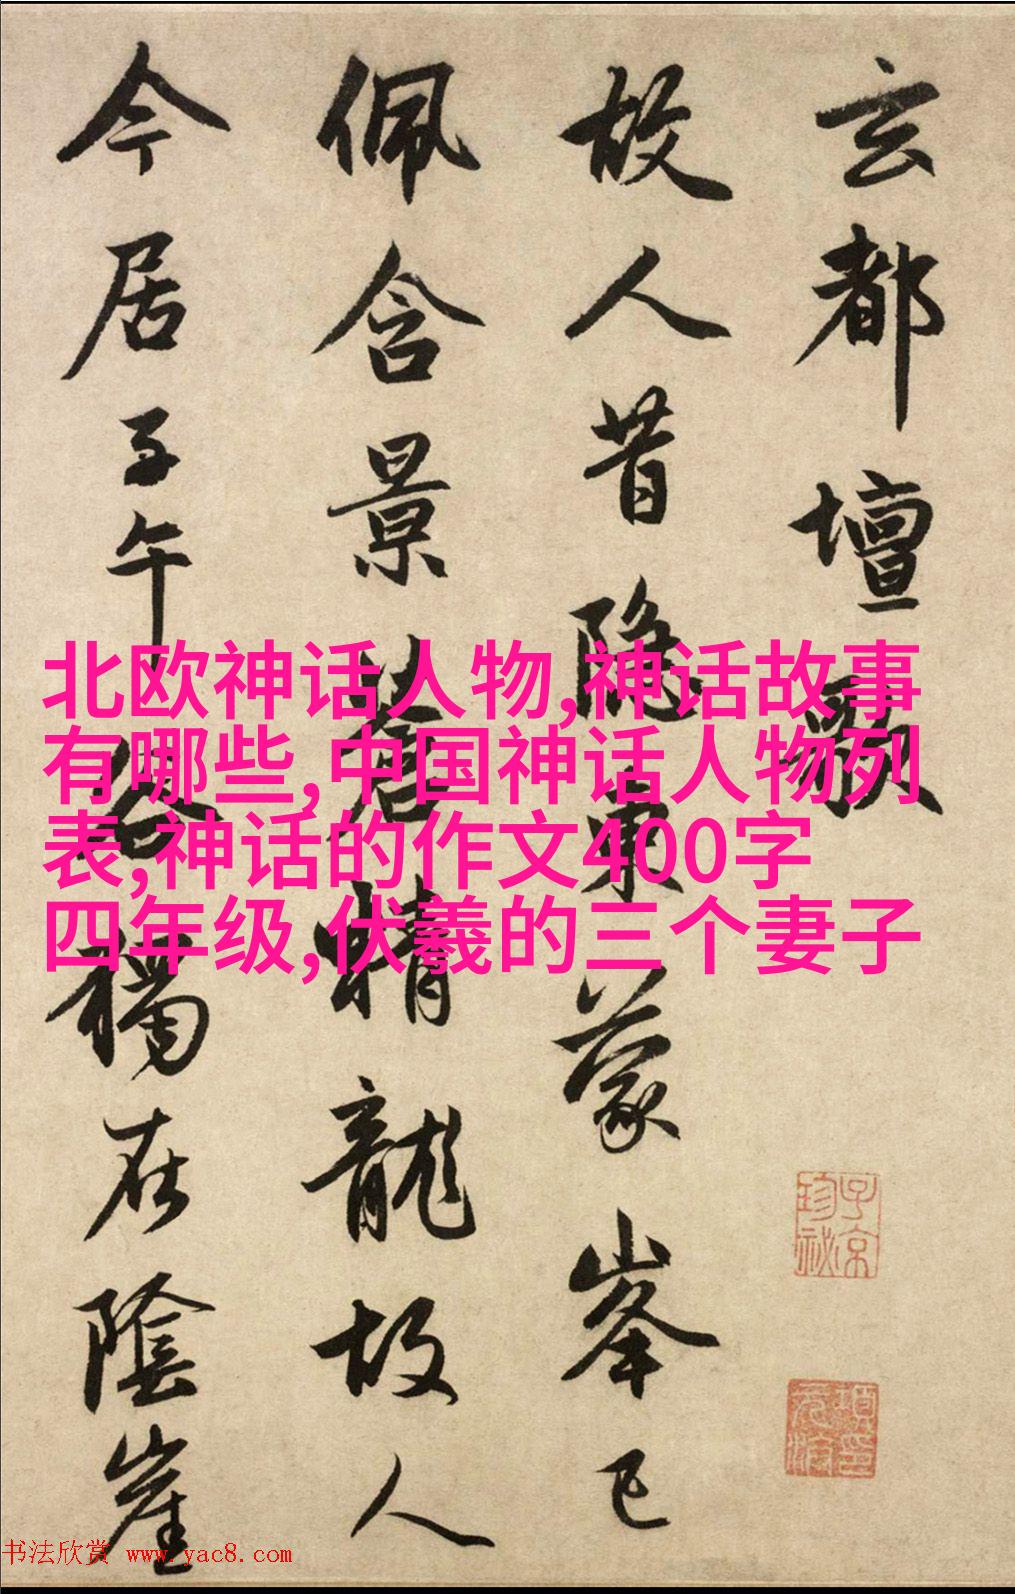 玄都壇歌
故人昔隐東蒙峯已
佩含景蒼精龍故人
今居子午谷獨在陰崖
北欧神话人物,神话故事
有哪些,中国神话人物列
表,神话的作文400字
四年级,伏羲的三个妻子
子京
珍祕
书法欣赏 www.yac8.com